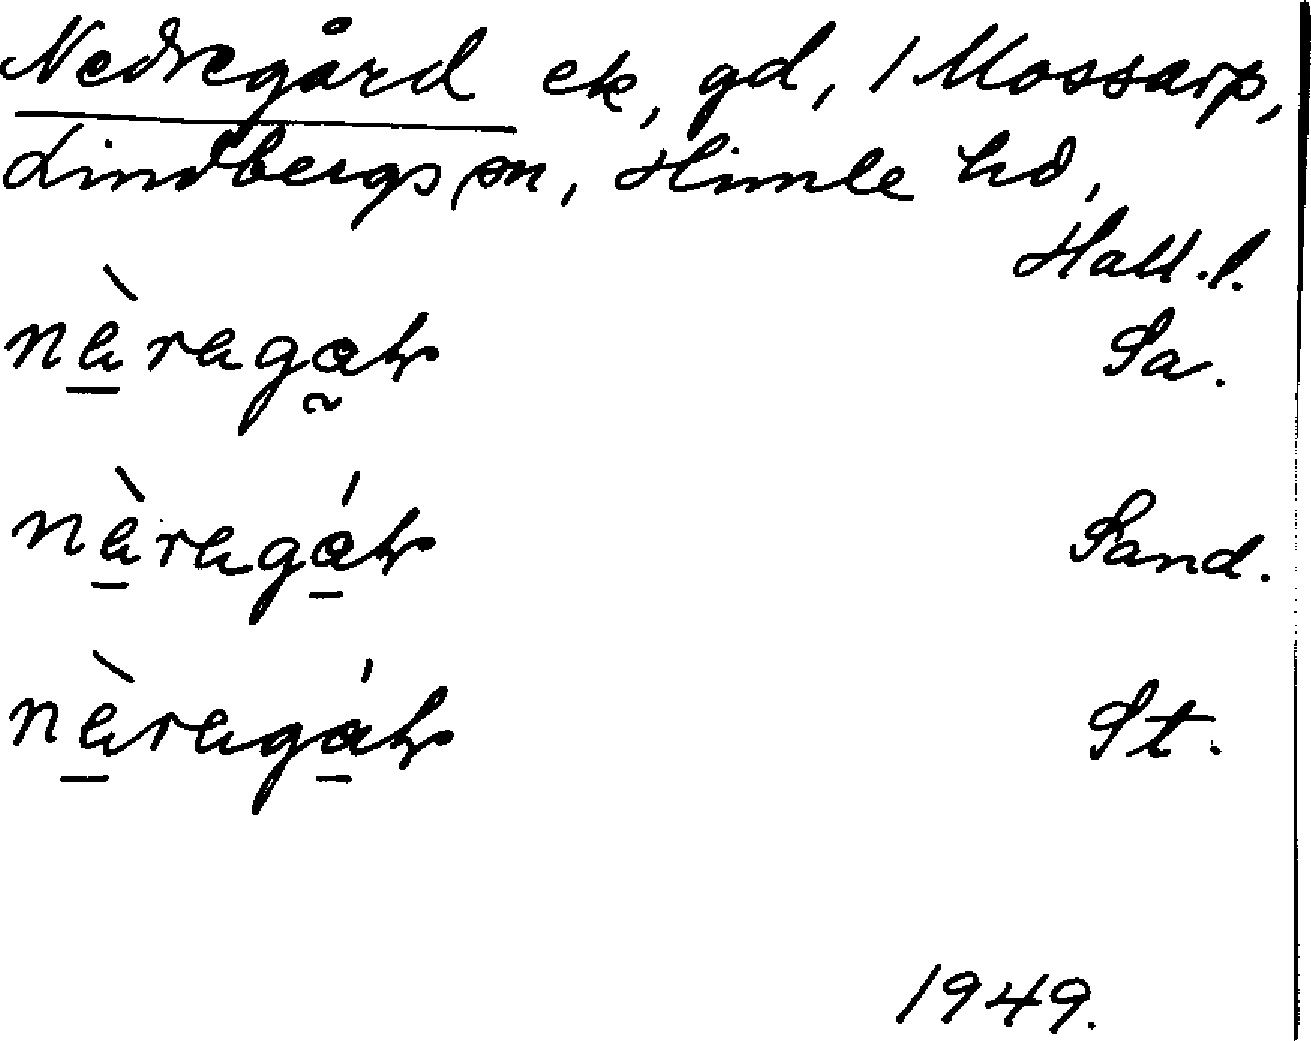 Nedregård ek, gd, 1 Mossarp,
Lindbergs sn, Himle hd,
Hall.l.
nàragaɫ Sa.
nàragáɫ Sand.
nàragáɫ St.
1949.